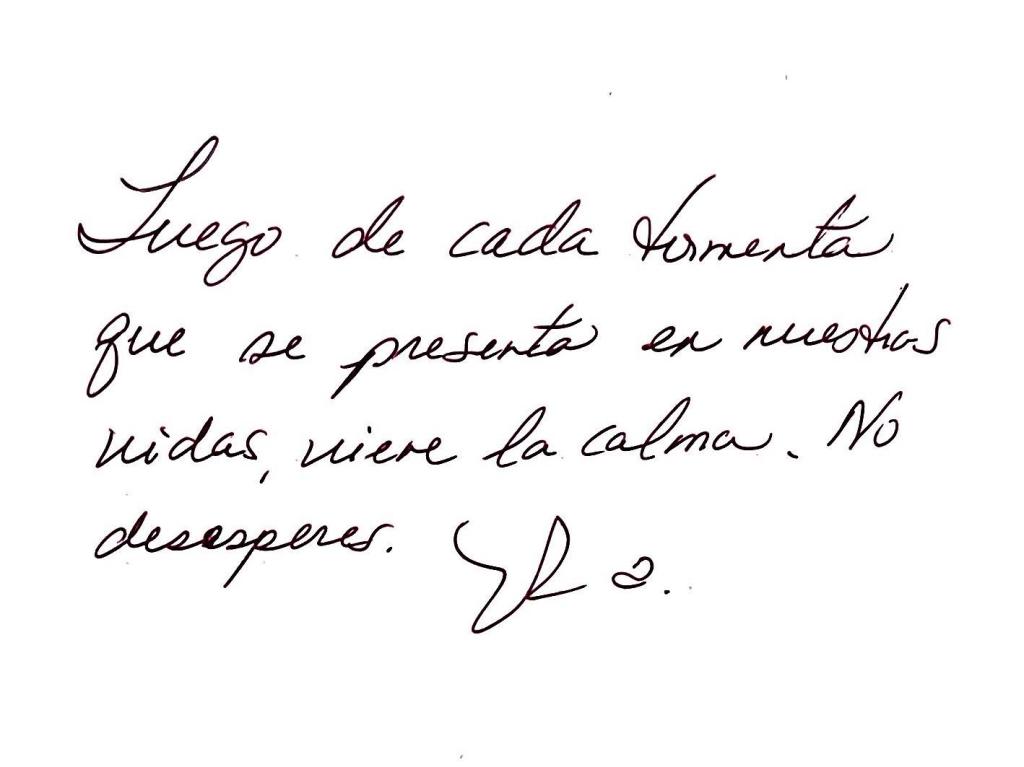 Luego de cada tormenta
que se presenta en nuestras
vidas, viene la calma. No
desesperes.